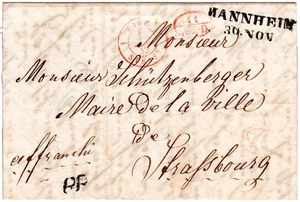 MANNHEIM
30. NOV
Monsieur
Monsieur Schützenberger
Maire de la ville
de
affranchi
Strassbourg
PP